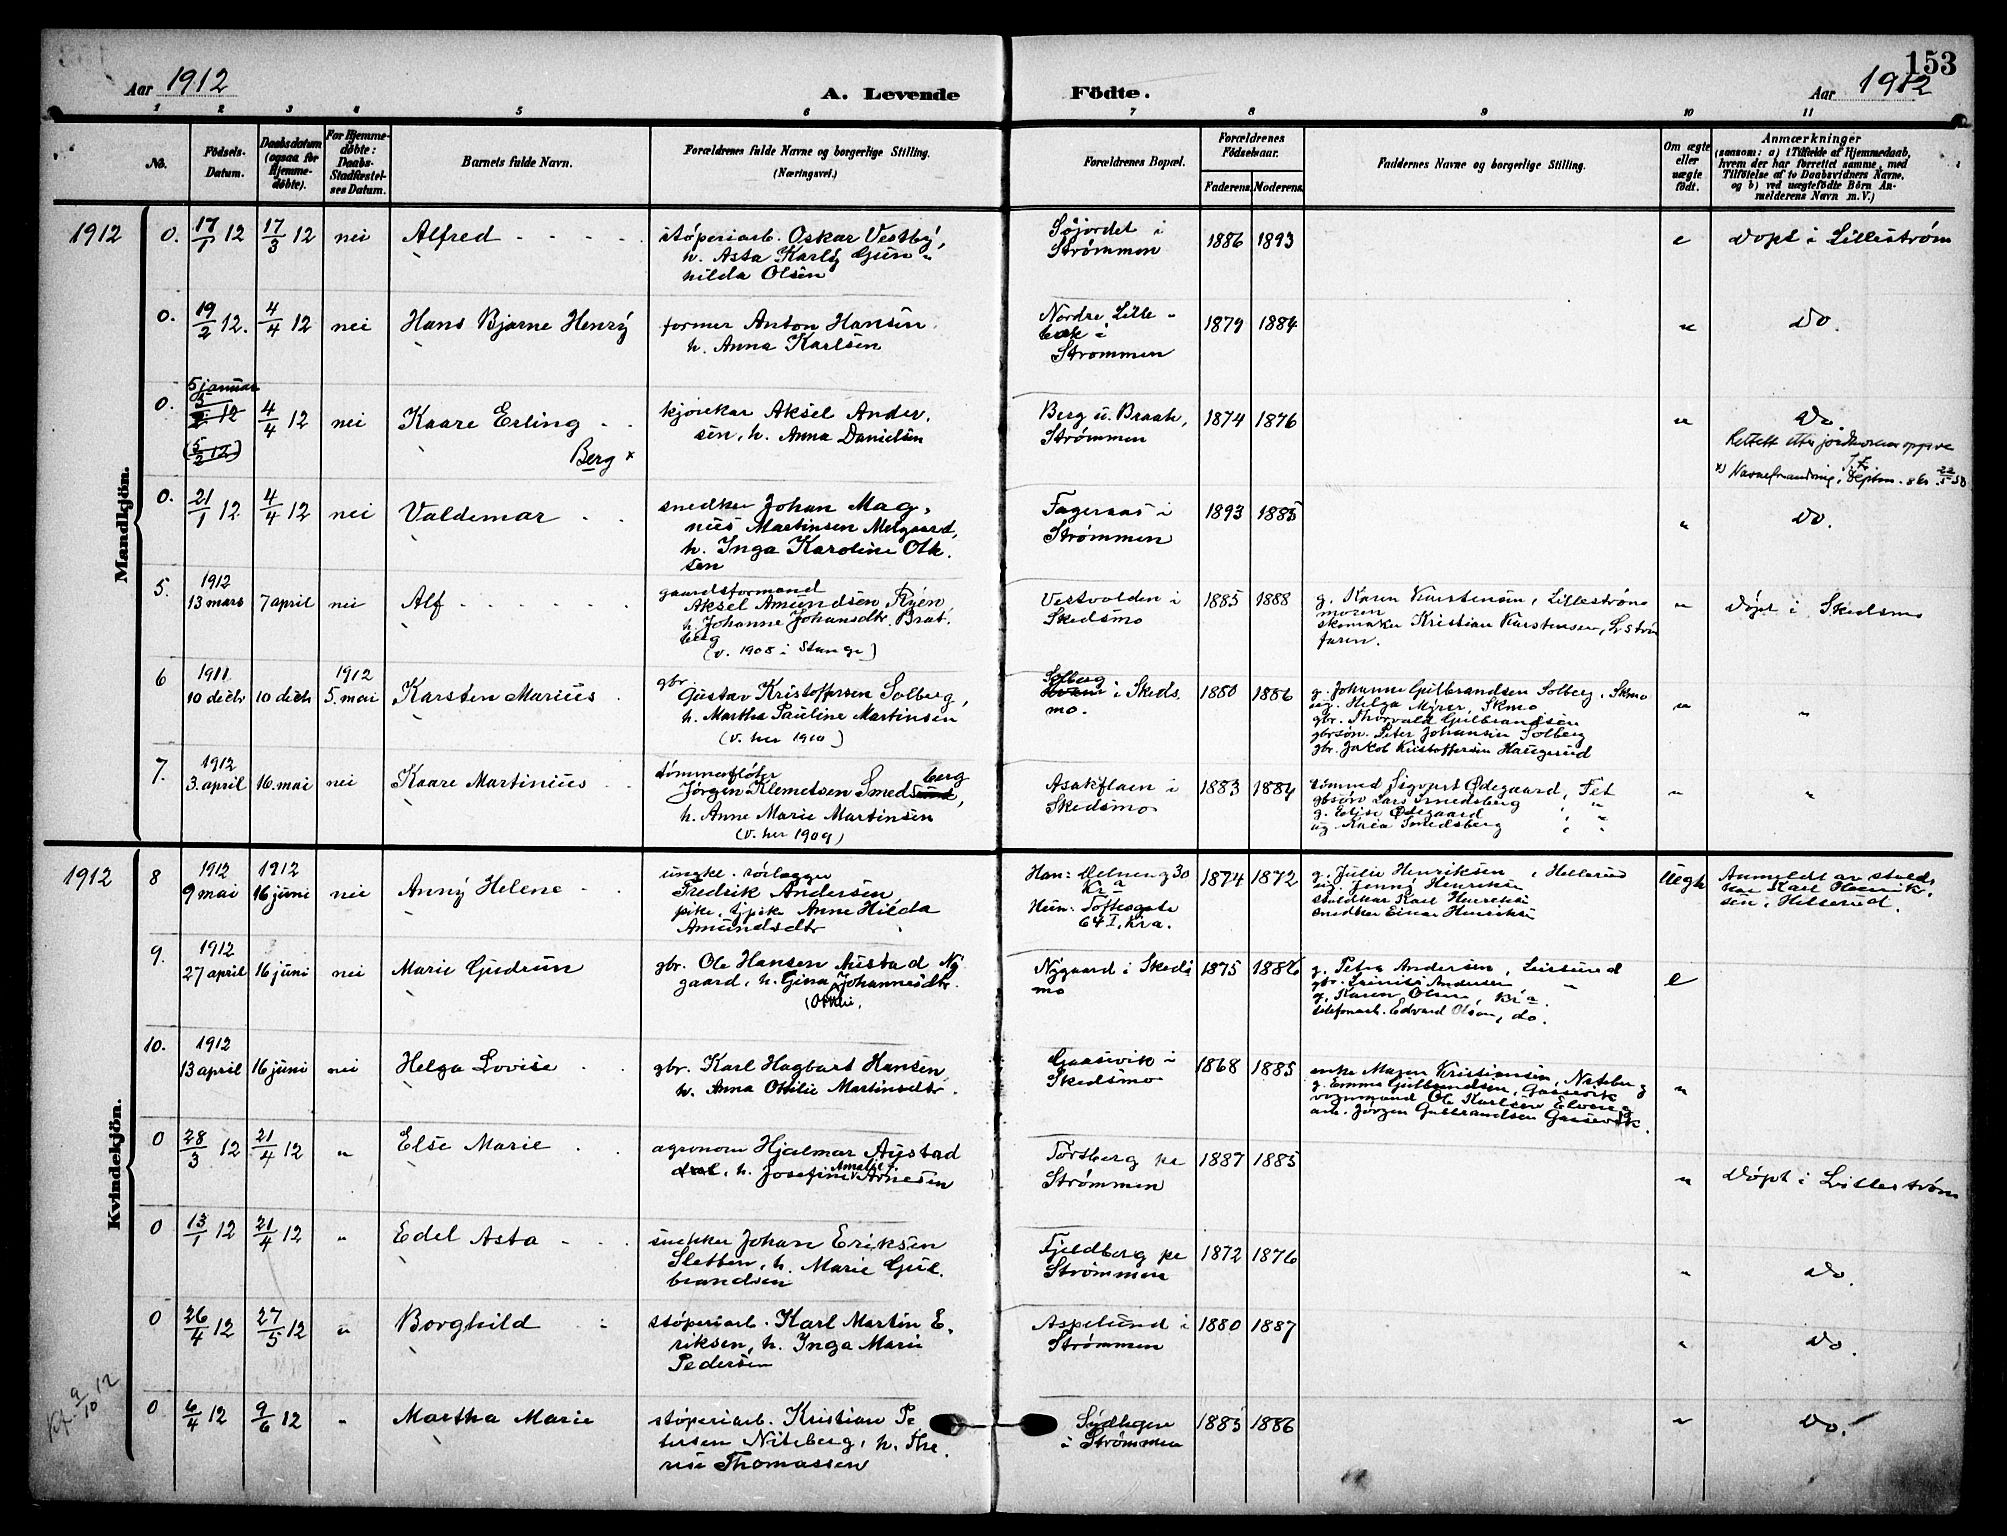 153
Aar 1912
A. Levende Födte.
Aar 1912
1 2 3 4 5 6 7 8 9 10 11
No.
Födsels-
Datum.
Daabsdatum
(ogsaa for
Hjemme-
döbte).
For Hjemme-
döbte:
Daabs-
Stadfæstel-
ses Datum.
Barnets fulde Navn.
Forældrenes fulde Navne og borgerlige Stilling.
(Næringsvei.)
Forældrenes Bopæl.
Forældrenes
Födselsaar.
Faderens. Moderens.
Faddernes Navne og borgerlige Stilling.
Om ægte
eller
uægte
födt.
Anmærkninger
(saasom: a) i Tilfælde af Hjemmedaab,
hvem der har forrettet samme, med
Tilföielse af to Daabsvidners Navne,
og b) ved uægtefödte Börn An-
melderens Navn m. V.)
Mandkjön.
1912
0. 17/1 12 17/3 12 nei Alfred
støperiarb. Oskar Vestby,
h. Asta Karly Gun-
hilda Olsen
Søjordet i
Strømmen
1886 1893
e
Døpt i Lillestrøm
0. 19/2 12. 4/4 12 nei Hans Bjarne Henry
former Anton Hansen
h. Anna Karlsen
Nordre Lille-
bæk i
Strømmen
1879 1884
"
Do.
0. 5 januar
(5/2 12)
4/4 12 nei Kaare Erling
Berg x
kjørekar Aksel Ander-
sen, h. Anna Danielsen
Berg u. Braate,
Strømmen
1874 1876
"
Do.
Rettet etter jordmorens oppgave
x) Navneforandring,
0. 21/1 12 4/4 12 nei Valdemar
snedker Johan Mag-
nus Martinsen Melgaard,
h. Inga Karoline Ol-
sen
Fagernas i
Strømmen
1893 1885
"
Do.
5. 1912
13 mars 7 april nei Alf
gaardsformand
Aksel Amundsen Ryen,
h. Johanne Johansdtr. Brat-
berg
(v. 1908 i Stange)
Vestvolden i
Skedsmo
1885 1888
g. Karen Karstensen, Lillestrøm
moren
skomaker Kristian Karstensen, L.strøm
faren.
"
Døpt i Skedsmo
6 1911
10 decbr 10 decb 1912
5. mai Karsten Marius
gbr.
Gustav Kristoffersen Solberg,
h. Martha Pauline Martinsen
(v. her 1910)
Solberg
i Skeds
mo.
1880 1886
g. Johanne Gulbrandsen Solberg, Skmo
ug. Helga Myrer, Skmo
gbr. Thorvald Gulbrandsen
gbrsøn. Peter Johansen Solberg
gbr. Jakob Kristoffersen Haugerud
"
"
7. 1912
3. april 16. mai nei Kaare Martinius
tømmerfløter
Jørgen Klemetsen Smedsberg,
h. Anne Marie Martinsen
(v. her 1909)
Asakflaen i
Skedsmo
1883 1884
tømmed Sigvart Ødegaard, Fet
gbrsøn Lars Smedsberg "
g. Ødegaard "
ug. Kaia Smedsberg "
"
"
Kvindekjön.
1912
8 1912
9 mai 1912
16 juni nei Anny Helene
ungke. rørlegger
Fredrik Andersen
pike, Anne Hilda
Amundsdtr
Han: Delneng 30
Kra
Hun: Toftesgate
64 I, Kra.
1874 1872
g. Julie Henriksen, Hellerud
ug. Jenny Henriksen
staldkar Karl Henriksen
snedker Einar Henriksen
Uegte
Anmeldt av stald-
kar Karl Henrik-
sen, Hellerud.
9. 1912
27 april 16 juni nei Marie Gudrun
gbr. Ole Hansen Austad Ny-
gaard, h. Gina Johannesdtr.
(Othilie.
Nygaard i Skeds
mo
1875 1886
g. Petra Andersen, Leirsund
gbr. Andersen "
g. Karen Olsen, Kra.
telefonarb. Edvard Olsen, do.
e
10. 1912
13 april 16 juni nei Helga Lovise
gbr. Karl Hagbart Hansen
h. Anna Othilie Martinsdtr.
Gaasevik i
Skedsmo
1868 1885
enke Maren Kristiansen, Niteberg
g. Emma Gulbrandsen, Gaasevik
vognmand Ole Karlsen Elveng
arb. Jørgen Gulbrandsen Gaasevik.
"
0 28/3 12 21/4 12 " Else Marie
agronom Hjalmar Aystad
dal, h. Josefine Amalie Arnesen
Torsberg pr
Strømmen
1887 1885
"
Døpt i Lillestrøm
0 13/1 12 21/4 12 " Edel Asta
snekker Johan Eriksen
Sletten, h. Marie Gul-
brandsen
Fjeldberg pr
Strømmen
1872 1876
"
Do.
0 26/4 12 27/5 12 " Borghild
støperiarb. Karl Martin E-
riksen, h. Inga Marie
Pedersen
Aspelund i
Strømmen
1880 1887
"
Do.
0 6/4 12 9/6 12 " Martha Marie
støperiarb. Kristian Pe-
tersen Niteberg, h. The-
rese Thomassen
Sydhagen
i Strømmen
1885 1886
"
Do.
9/10 12